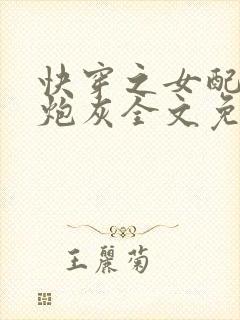 快穿之女配
炮灰全文免
王丽菊